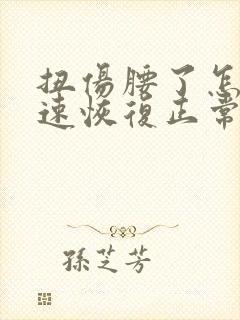 扭傷腰了怎
速恢復正常
孫芝芳